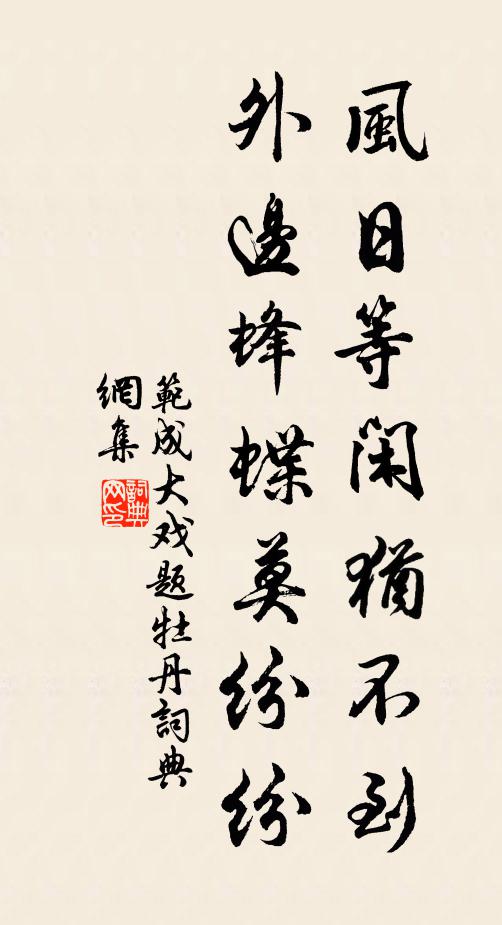 風日等閑猶不到
外邊蜂蝶莫紛紛
範成大戏題牡丹詞典
網集
詞典
网印